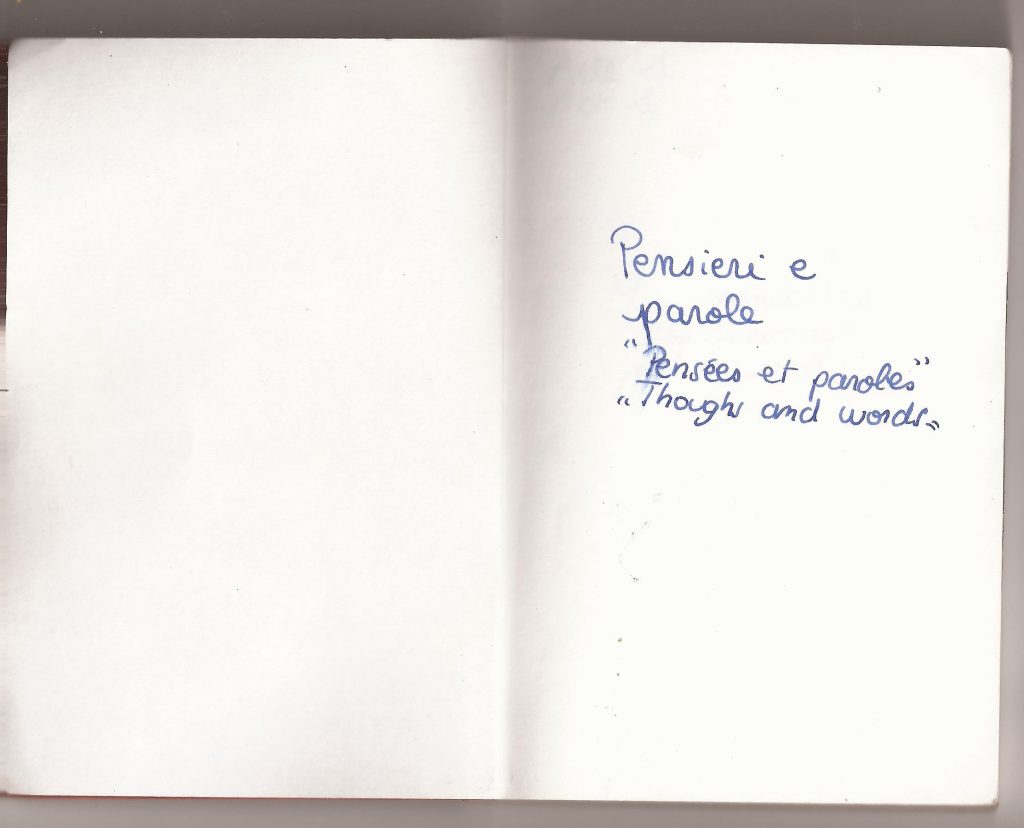 Pensieri e
parole
"Pensées et paroles"
"Thoughs and words"